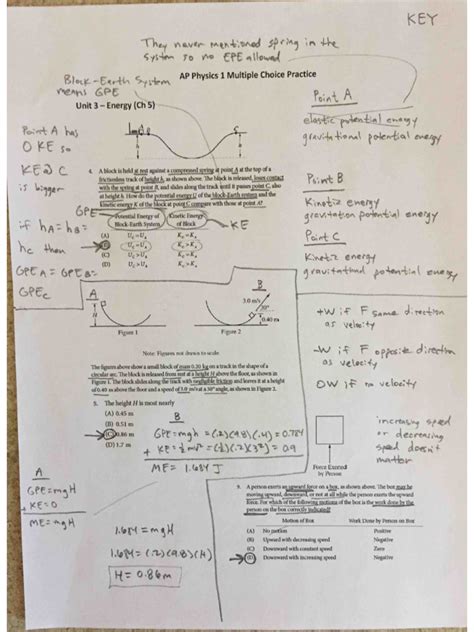 KEY
They never mentioned spring in the
system so no EPE allowed
Block-Earth System
means GPE
AP Physics 1 Multiple Choice Practice
Unit 3 – Energy (Ch 5)
Point A
elastic potential energy
gravitational potential energy
Point B
Kinetic energy
gravitation potential energy
Point C
Kinetic energy
gravitational potential energy
Point A has
0 KE so
KE @ C
is bigger
if hA = hB =
hC then
GPEA = GPEB =
GPEC
4. A block is held at rest against a compressed spring at point A at the top of a
frictionless track of height h, as shown above. The block is released, loses contact
with the spring at point B, and slides along the track until it passes point C, also
at height h. How do the potential energy U of the Block-Earth system and the
kinetic energy K of the block at point C compare with those at point A?
GPE
KE
Potential Energy of Block-Earth System
Kinetic Energy of Block
(A)
(B)
(C)
(D)
A
H
Figure 1
B
3.0 m/s
30°
0.40 m
Figure 2
Note: Figures not drawn to scale.
The figures above show a small block of mass 0.20 kg on a track in the shape of a
circular arc. The block is released from rest at a height H above the floor, as shown in
Figure 1. The block slides along the track with negligible friction and leaves it at a height
of 0.40 m above the floor and a speed of 3.0 m/s at a 30° angle, as shown in Figure 2.
5. The height H is most nearly
(A) 0.45 m
(B) 0.51 m
(C) 0.86 m
(D) 1.7 m
B
GPE = mgh = (.2)(9.8)(.4) = 0.784
+ KE = ½mv² = (½)(.2)(3²) = 0.9
ME = 1.684 J
A
GPE = mgH
+ KE = 0
ME = mgH
1.684 = mgH
1.684 = (.2)(9.8)(H)
H = 0.86 m
+W if F same direction
as velocity
-W if F opposite direction
as velocity
0W if no velocity
increasing speed
or decreasing
speed doesn't
matter
Force Exerted
by Person
9. A person exerts an upward force on a box, as shown above. The box may be
moving upward, downward, or not at all while the person exerts the upward
force. For which of the following motions of box is the work done by the
person on the box correctly indicated?
Motion of Box Work Done by Person on Box
(A) No motion Positive
(B) Upward with decreasing speed Negative
(C) Downward with constant speed Zero
(D) Downward with increasing speed Negative